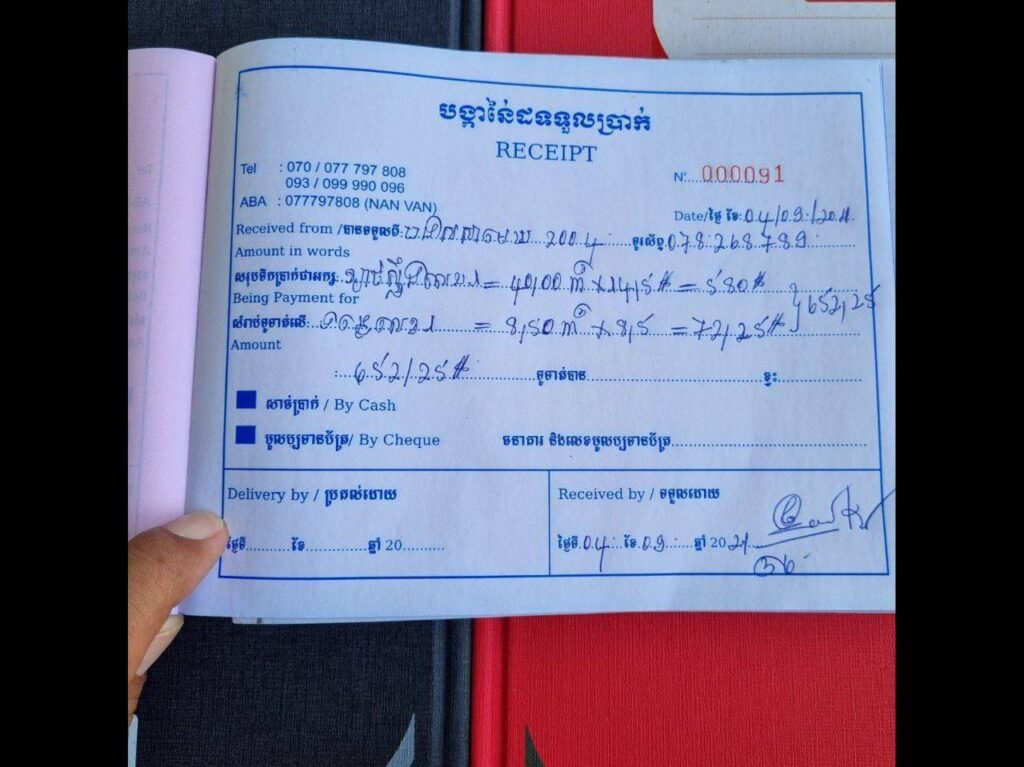 បង្កាន់ដៃទទួលប្រាក់
RECEIPT
Tel : 070 / 077 797 808
093 / 099 990 096
ABA : 077797808 (NAN VAN)
Nº 000091
Date/ថ្ងៃ ខែ: 04/09/2021
Received from /បានទទួលពី: 2004 ទូរស័ព្ទ 078 268 789
Amount in words
សរុបទឹកប្រាក់ជាអក្សរ: = 40,00 ៣ x 14,5$ = 580$
Being Payment for
សំរាប់ទូទាត់លើ: = 8,50 ៣ x 8,5 = 72,25$ } 652,25
Amount
: 652,25$ ទូទាត់បាន ខ្វះ
សាច់ប្រាក់ / By Cash
មូលប្បទានប័ត្រ/ By Cheque ធនាគារ និងលេខមូលប្បទានប័ត្រ
Delivery by / ប្រគល់ដោយ
ថ្ងៃទី ខែ ឆ្នាំ 20
Received by / ទទួលដោយ
ថ្ងៃទី 04 ខែ 09 ឆ្នាំ 2021